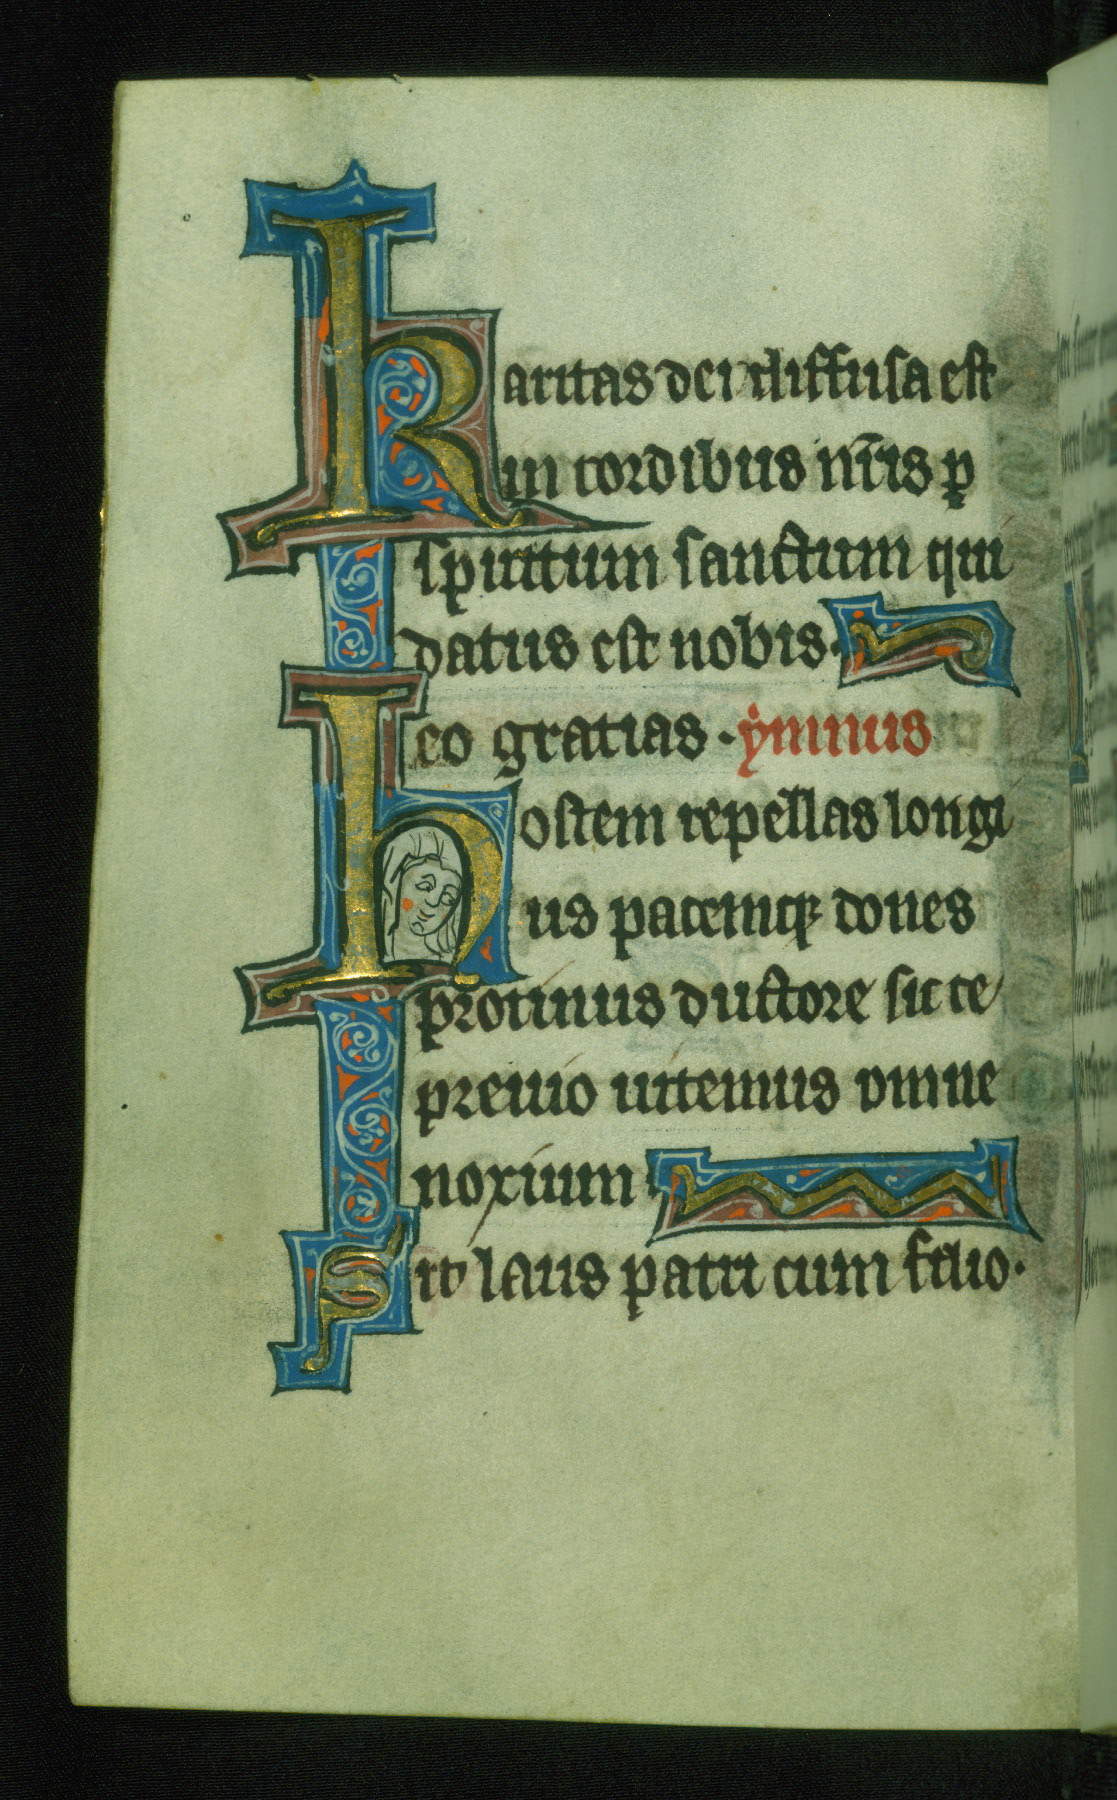 Karitas dei diffusa est
in cordibus nr̄is ꝑ
spiritum sanctum qui
datus est nobis.
eo gratias. ẏmnus
Hostem repellas longi
us pacemqꝫ dones
protinus ductore sic te
previo vitemus omne
noxium
Sit laus patri cum filio.